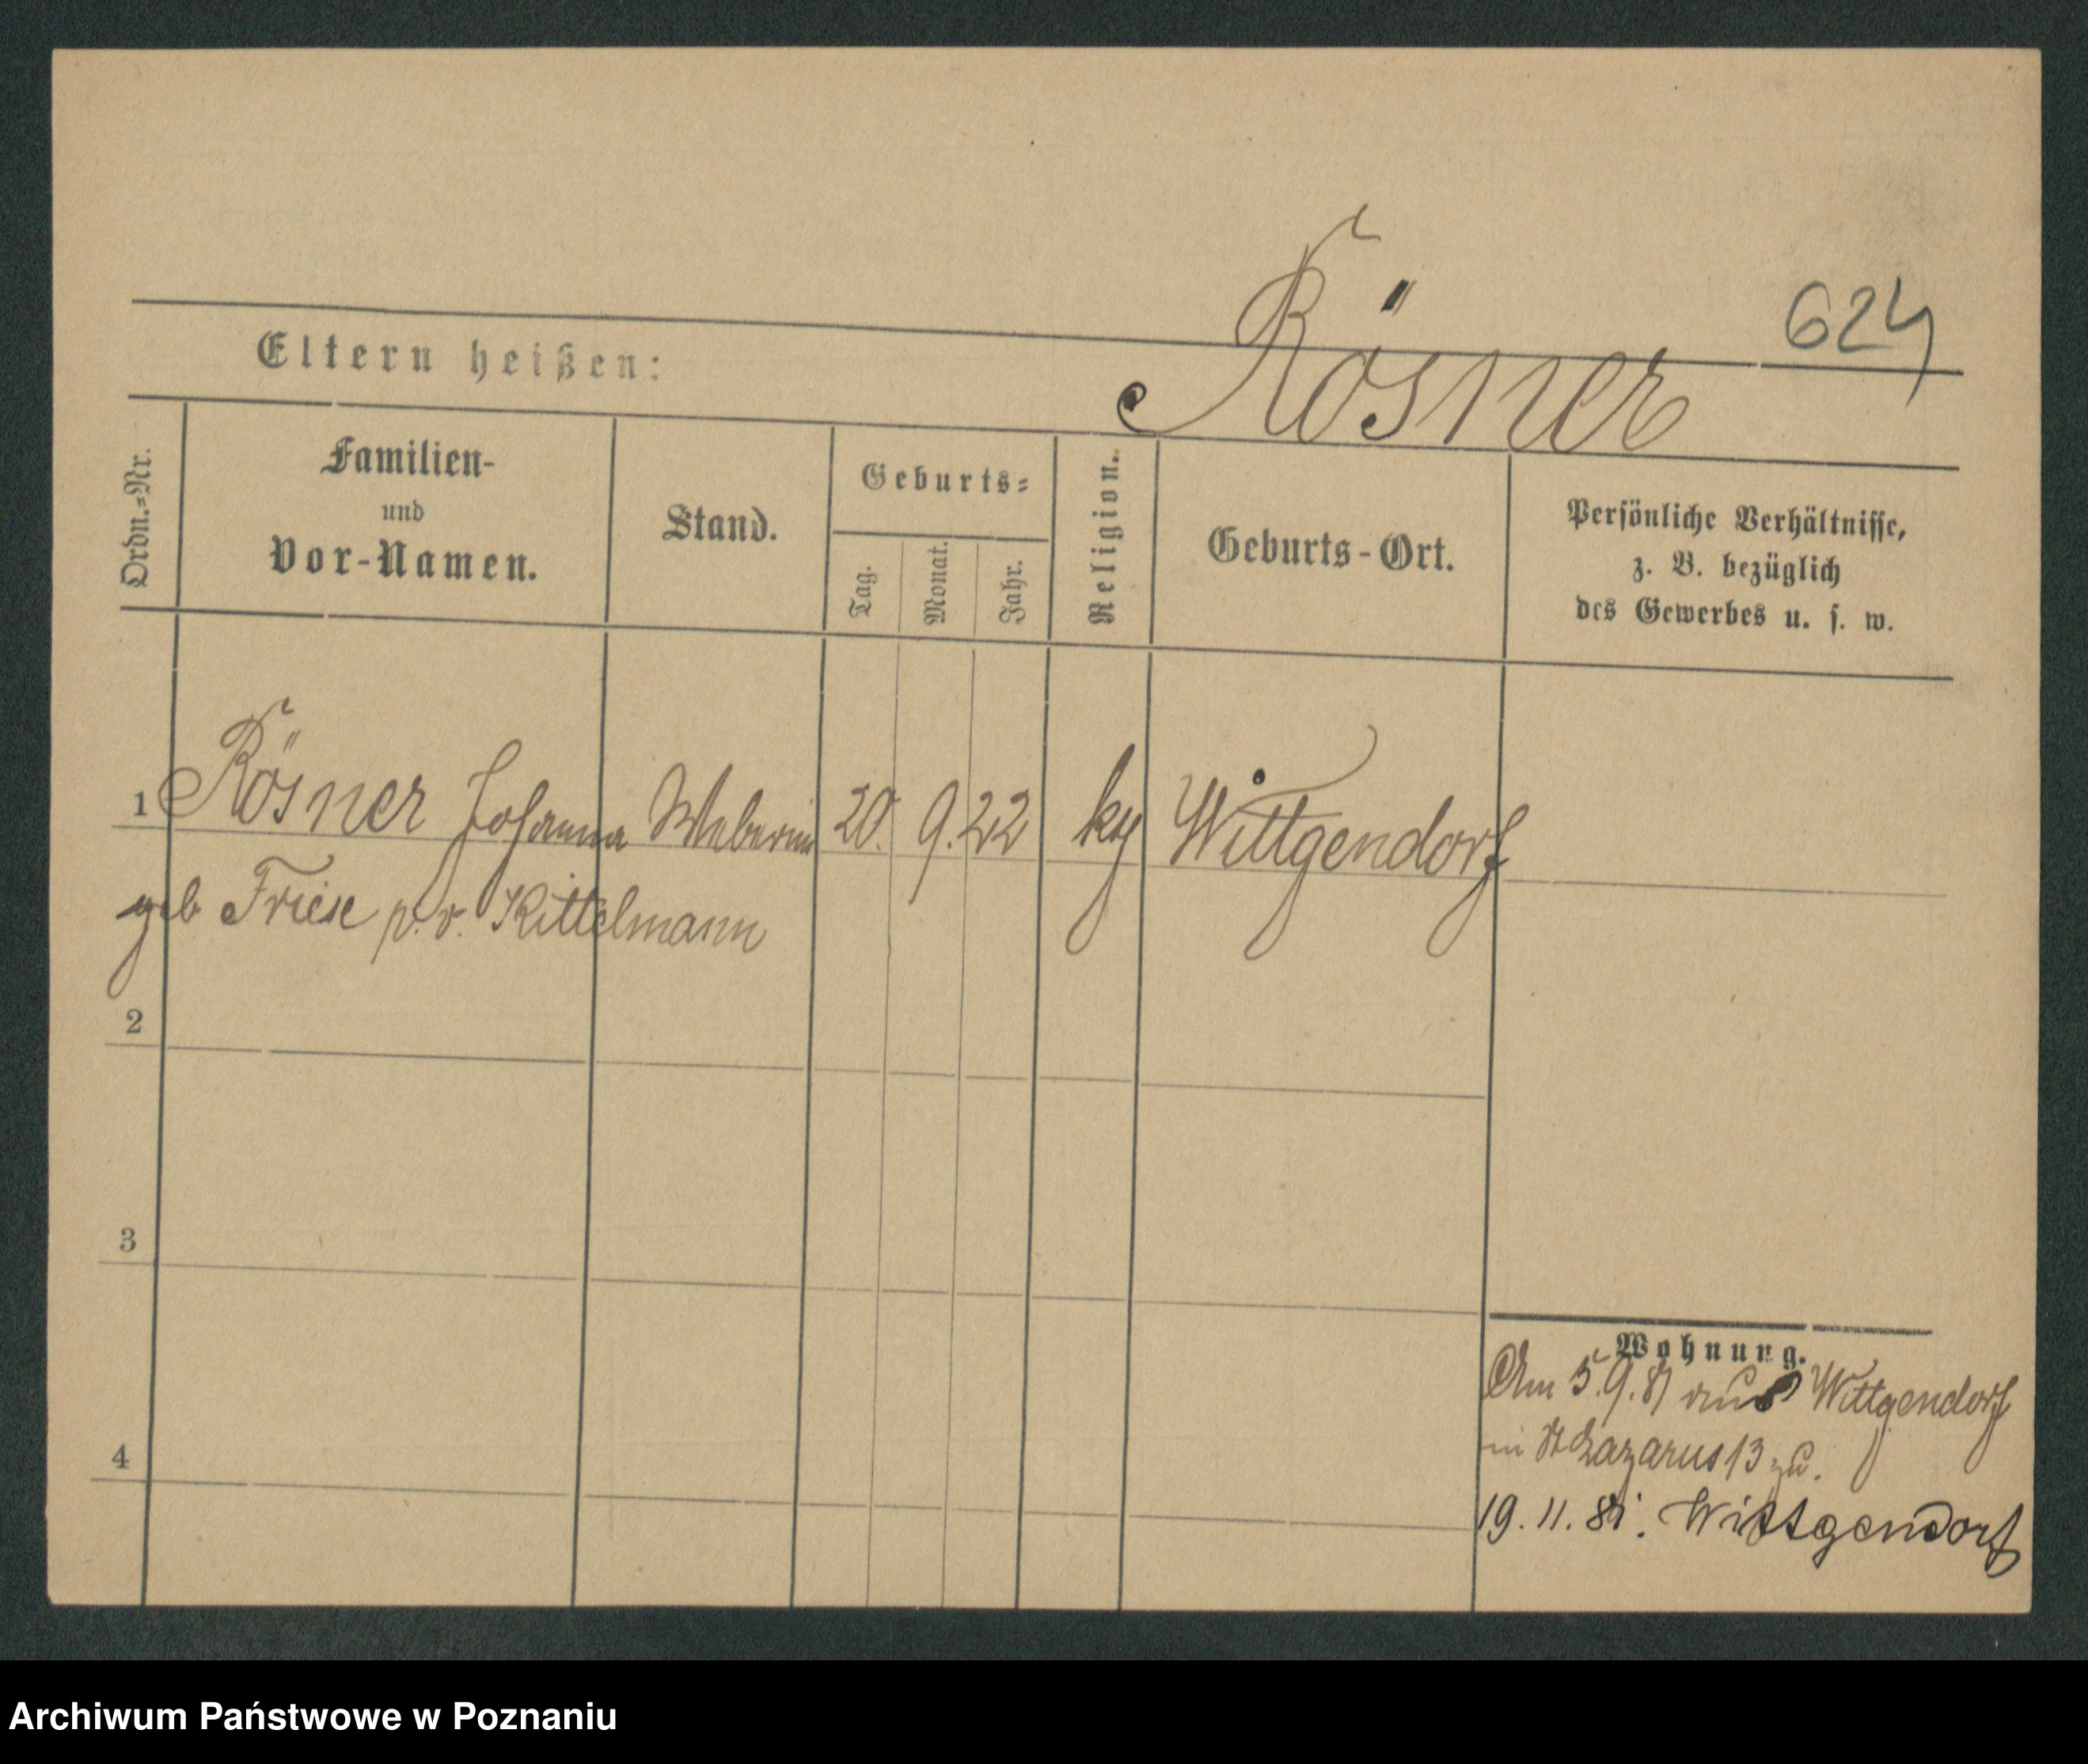 Rösner 624
Eltern heißen:
Ordn.-Nr.
Familien-
und
Vor-Namen.
Stand.
Geburts-
Tag.
Monat.
Jahr.
Religion.
Geburts-Ort.
Persönliche Verhältnisse,
z. B. bezüglich
des Gewerbes u. s. w.
1 Rösner Johanna Weberin 20. 9. 22 Wittgendorf
geb Friese p. v. Kittelmann
2
3
4
Wohnung.
Am 5. 9. 81 aus Wittgendorf
in St Lazarus 13 zu.
19. 11. 81. Wittgendorf
Archiwum Państwowe w Poznaniu